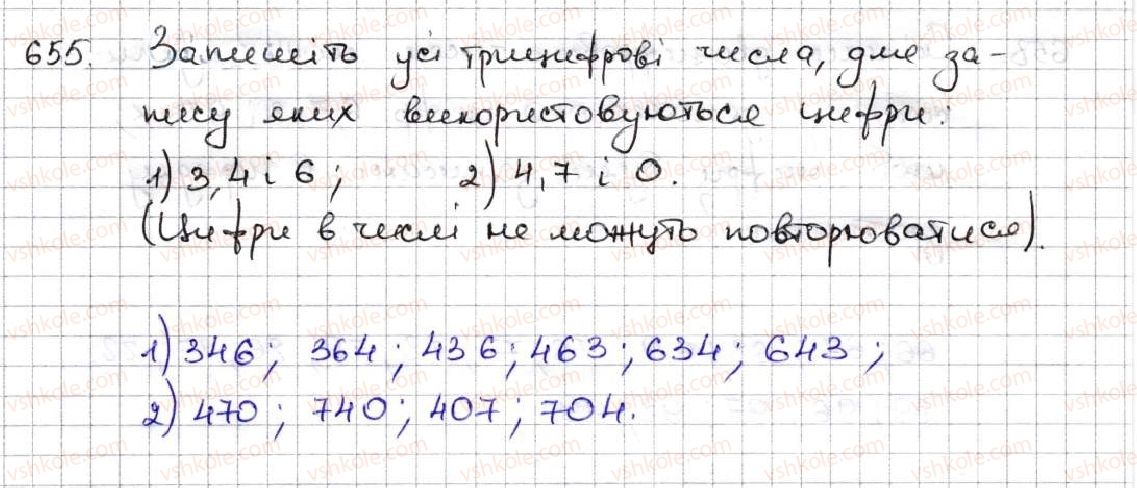 655. Запишіть усі трицифрові числа, для за-
пису яких використовуються цифри:
1) 3, 4 і 6; 2) 4, 7 і 0.
(Цифри в числі не можуть повторюватися).
1) 346; 364; 436; 463; 634; 643;
2) 470; 740; 407; 704.